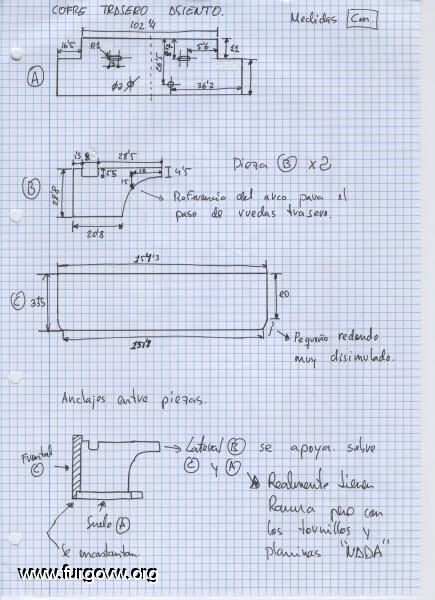 COFRE TRASERO ASIENTO.
Medidas Cm
102'4
16'5
R1
8'7
5'6
11
26'5
Ø2
36'2
A
28'5
4'5
B
28'8
15
20'8
Pieza B x2
Referencia del arco para el
paso de ruedas trasero.
154'3
C
Pequeño redondo
muy disimulado.
Anclajes entre piezas.
Frontal
C
Lateral B se apoya sobre
C y A
Suelo A
Se encastantan.
Realmente tienen
Ranura pero con
los tornillos y
platinas "NADA"
www.furgovw.org